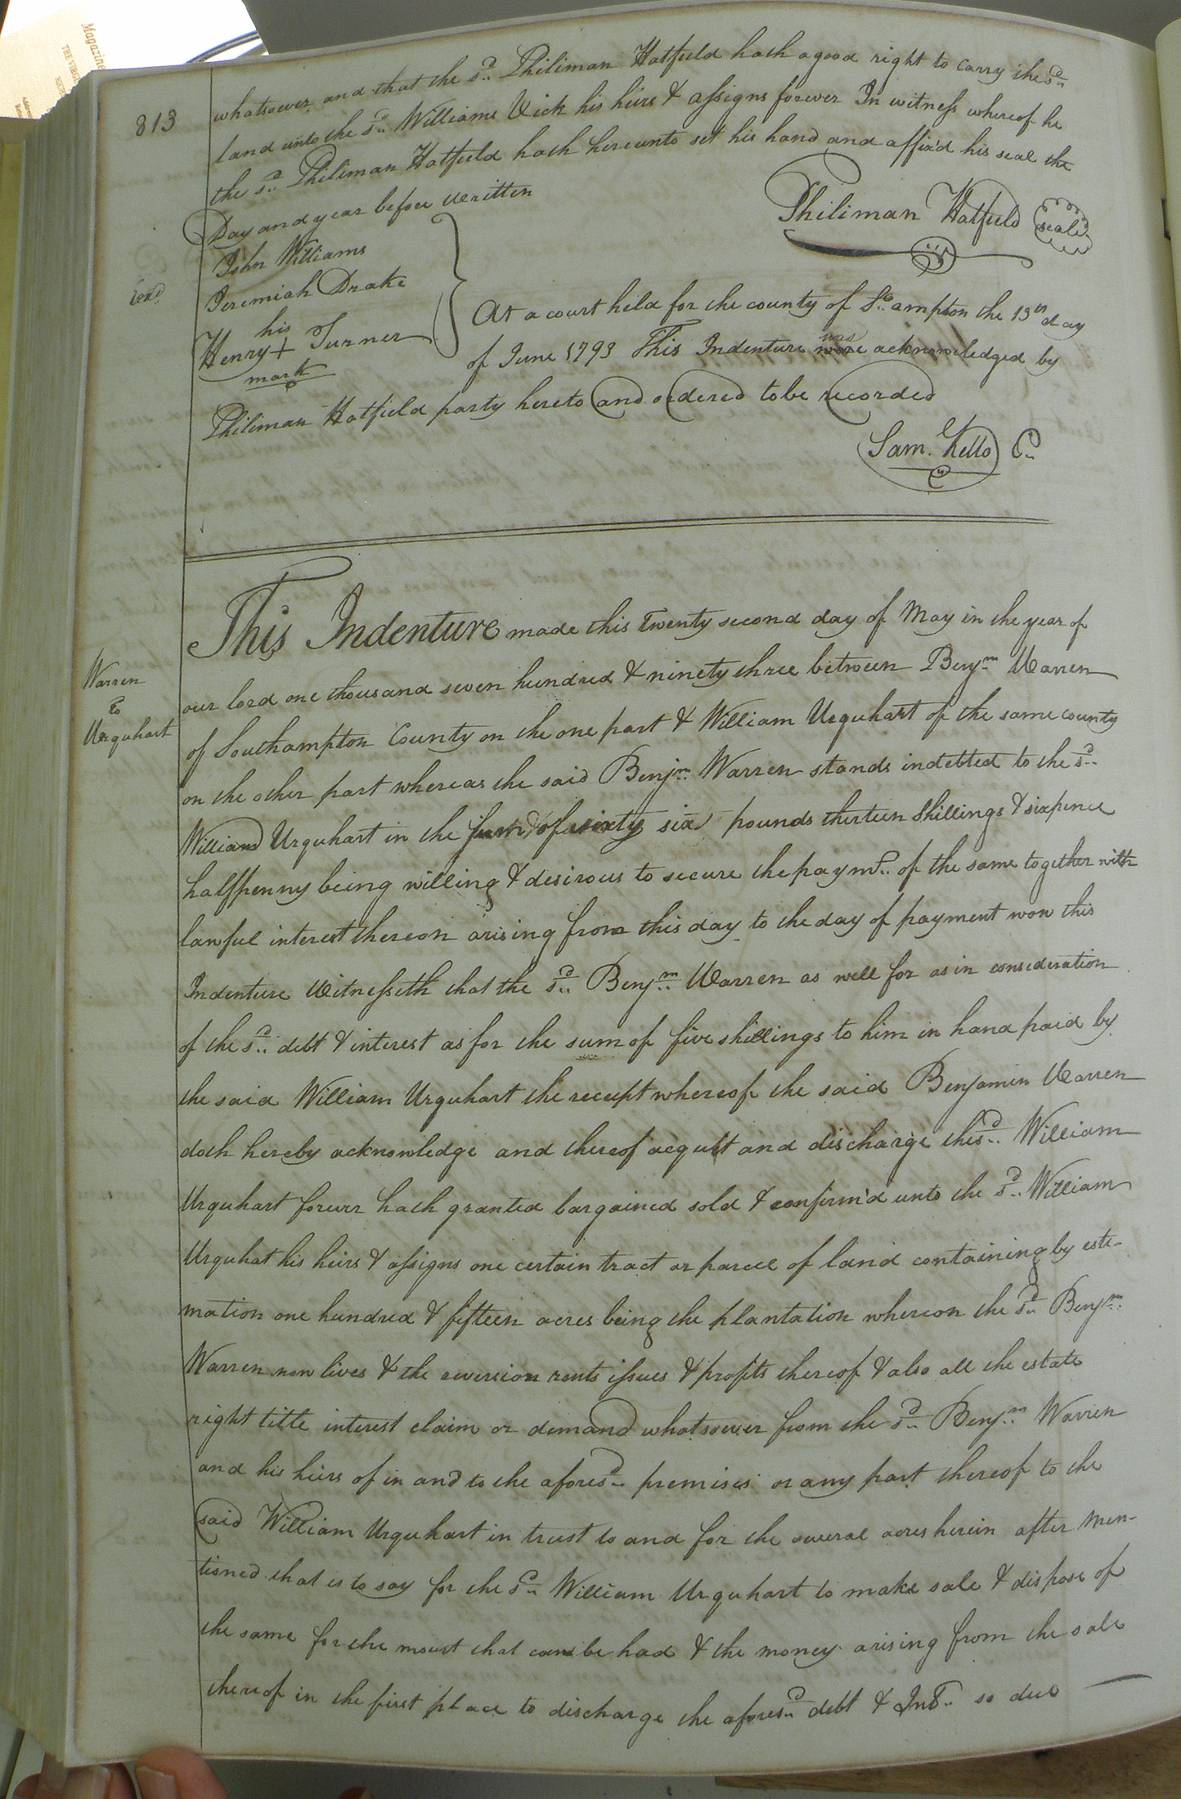 Magazine
813
whatsoever and that the sd. Philiman Hatfield hath a good right to carry the sd.
land unto the sd. Williams Vick his heirs & assigns forever In witness whereof he
the sd. Philiman Hatfield hath hereunto set his hand and affix'd his seal the
Day and year before Written
Philiman Hatfield seal
John Williams
Jeremiah Drake
his
Henry + Turner
mark
At a court held for the county of So.ampton the 13th day
of June 1793 This Indenture was acknowledged by
Philiman Hatfield party hereto and ordered to be recorded
Sam. Kello C.
Warren
to
Urquhart
This Indenture made this Twenty second day of May in the year of
our lord one thousand seven hundred & ninety three between Benjm. Warren
of Southampton County on the one part & William Urquhart of the same county
on the other part whereas the said Benjm. Warren stands indetted to the sd.
William Urquhart in the sum of sixty six pounds thirteen Shillings & sixpence
halfpenny being willing & desirous to secure the paymt. of the same together with
lawful interest thereon arising from this day to the day of payment now this
Indenture Witnesseth that the sd. Benjm. Warren as well for as in consideration
of the sd. debt & interest as for the sum of five shillings to him in hand paid by
the said William Urquhart the receipt whereof the said Benjamin Warren
doth hereby acknowledge and thereof acquit and discharge the sd. William
Urquhart forevr hath granted bargained sold & confirm'd unto the sd. William
Urquhat his heirs & assigns one certain tract or parcel of land containing by esti-
mation one hundred & fifteen acres being the plantation whereon the sd. Benjm.
Warren now lives & the reversion rents issues & profits thereof & also all the estate
right title interest claim or demand whatsoever from the sd. Benjm. Warren
and his heirs of in and to the aforesd. premises or any part thereof to the
said William Urquhart in trust to and for the several acres herein after Men-
tioned that is to say for the sd. William Urquhart to make sale & dispose of
the same for the moust that can be had & the money arising from the sale
thereof in the first place to discharge the aforesd. debt & Int. so due